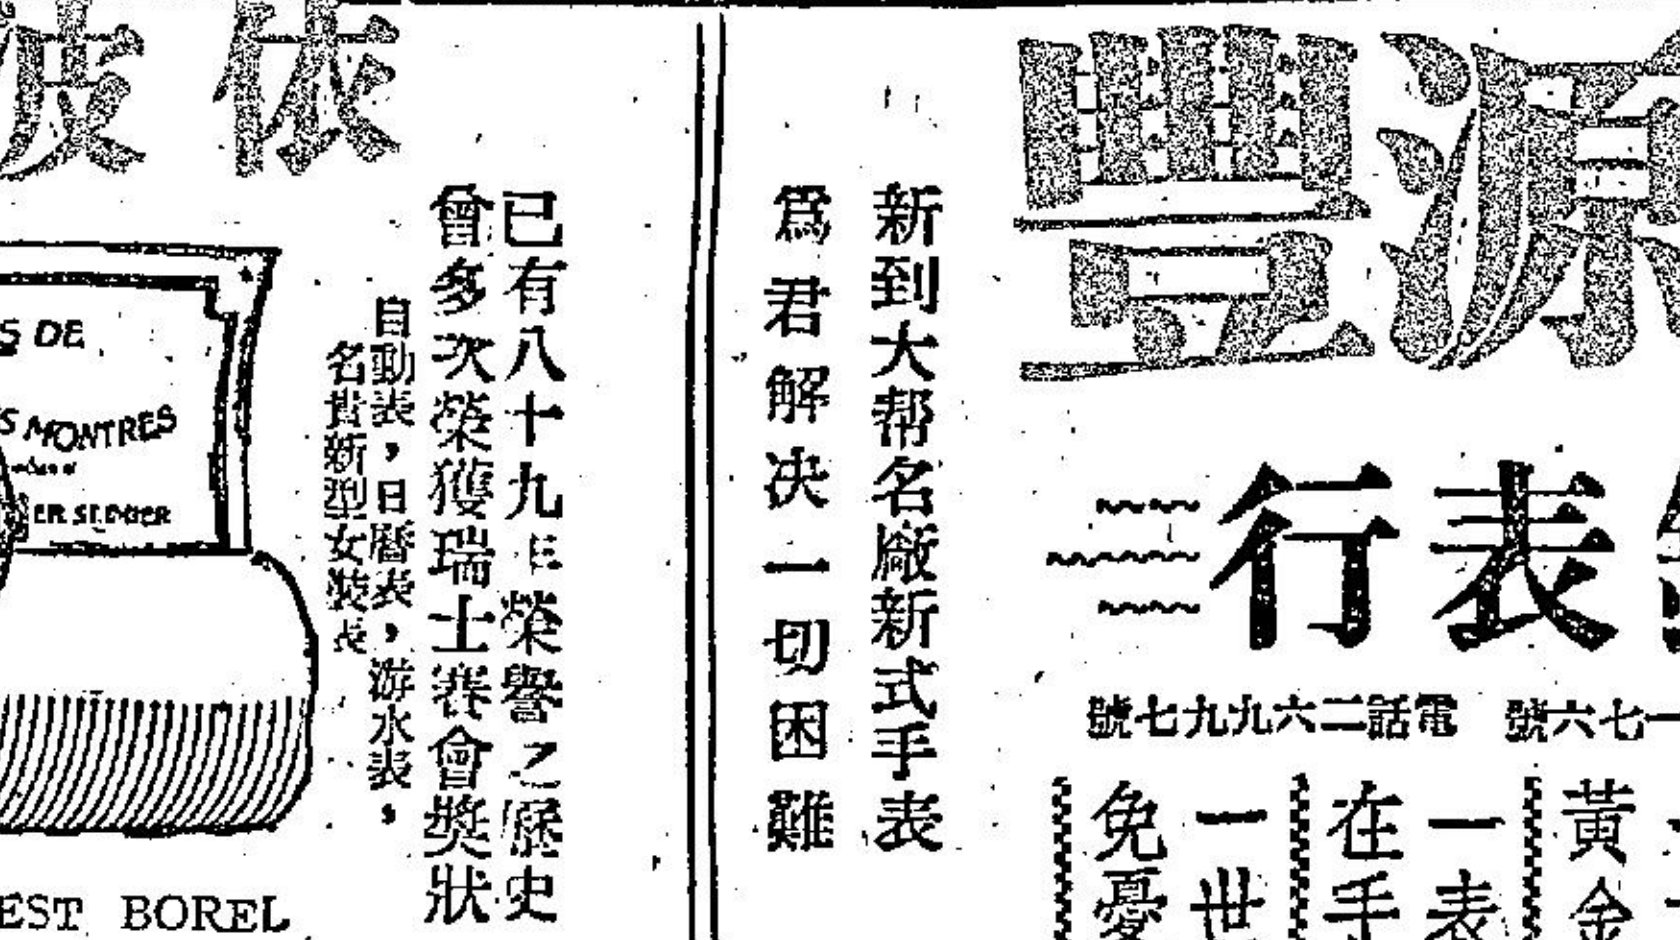 源豐
表行
一七六號 電話二六九九七號
黃金
一表在手
一世免憂
新到大帮名廠新式手表
為君解决一切困難
依波
已有八十九年榮譽之歷史
曾多次榮獲瑞士賽會獎狀
自動表，日曆表，游水表，
名貴新型女裝表
S DE
S MONTRES
EST BOREL